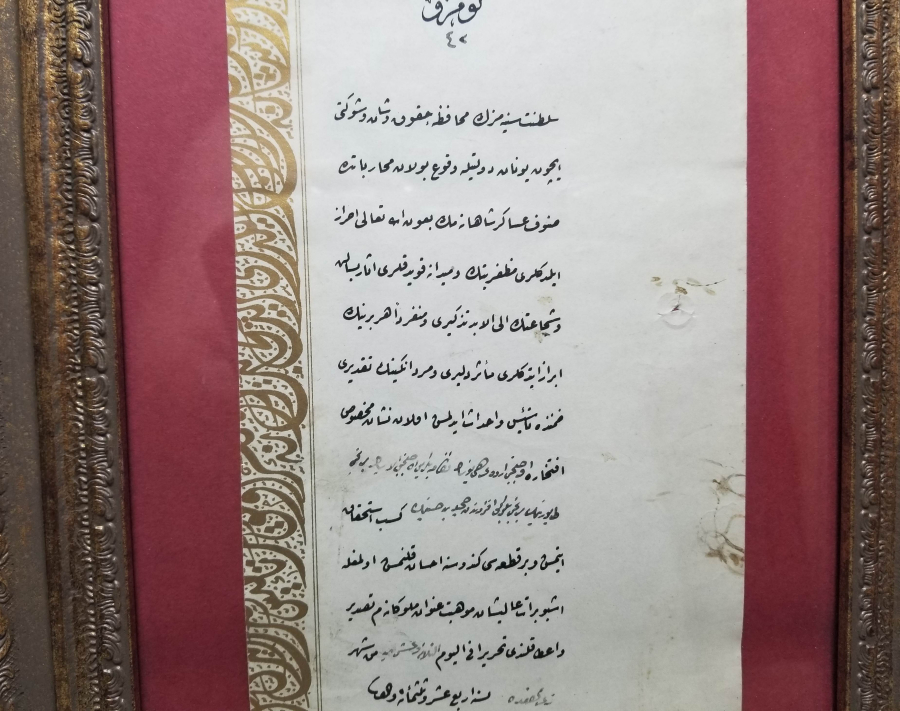 نومرو
٤٢
سلطنت سنیه مزك محافظۀ حقوق وشان وشوکتی
ایچون یونان دولتیله وقوع بولان محارباتده
صنوف عساکر شاهانه مك بعون الله تعالی احراز
ایلدکلری مظفریتك ومیدانه قویدقلری اثار بسالت
وشجاعتك الی الابد تذکیری ومنفرداً هر برینك
ابراز ایتدکلری مأثر دلیری ومردانکینك تقدیری
ضمننده تأسیس واحداث ایدلمش اولان نشان مخصوص
افتخاره
کسب استحقاق
ایتمش وبر قطعه سی کندوسنه احسان قلنمش اولمغله
اشبو برات عالیشان موهبت عنوان ملوکانه م تصدیر
واعطا قلندی تحریراً فی الیوم من شهر
لسنه اربع عشر وثلثمائه والف